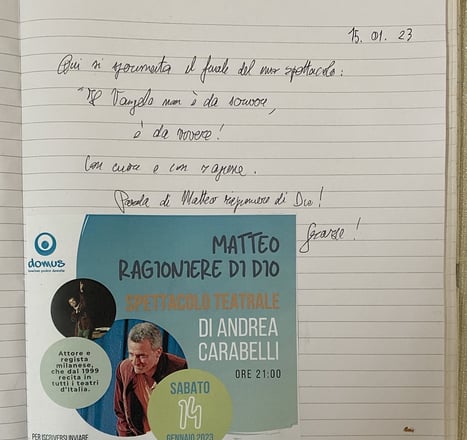 15.01.23
Qui si sperimenta il finale del mio spettacolo:
"Il Vangelo non è da scrivere,
è da vivere!
Con cuore e con ragione.
Parola di Matteo ragioniere di Dio!
Grazie!
domus
MATTEO
RAGIONIERE DI DIO
SPETTACOLO TEATRALE
DI ANDREA
CARABELLI
ORE 21:00
Attore e
regista
milanese,
che dal 1999
recita in
tutti i teatri
d'Italia.
SABATO
14
GENNAIO 2023
PER ISCRIVERSI INVIARE